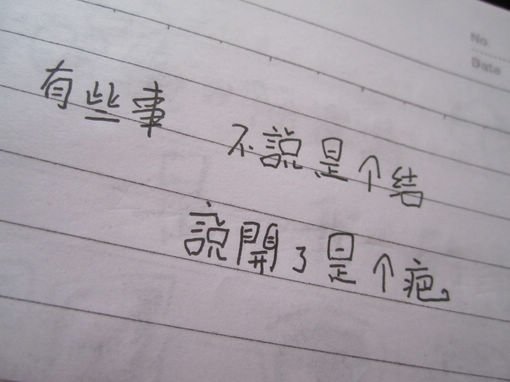 No.
Date
有些事 不說是个结
說開了是个疤